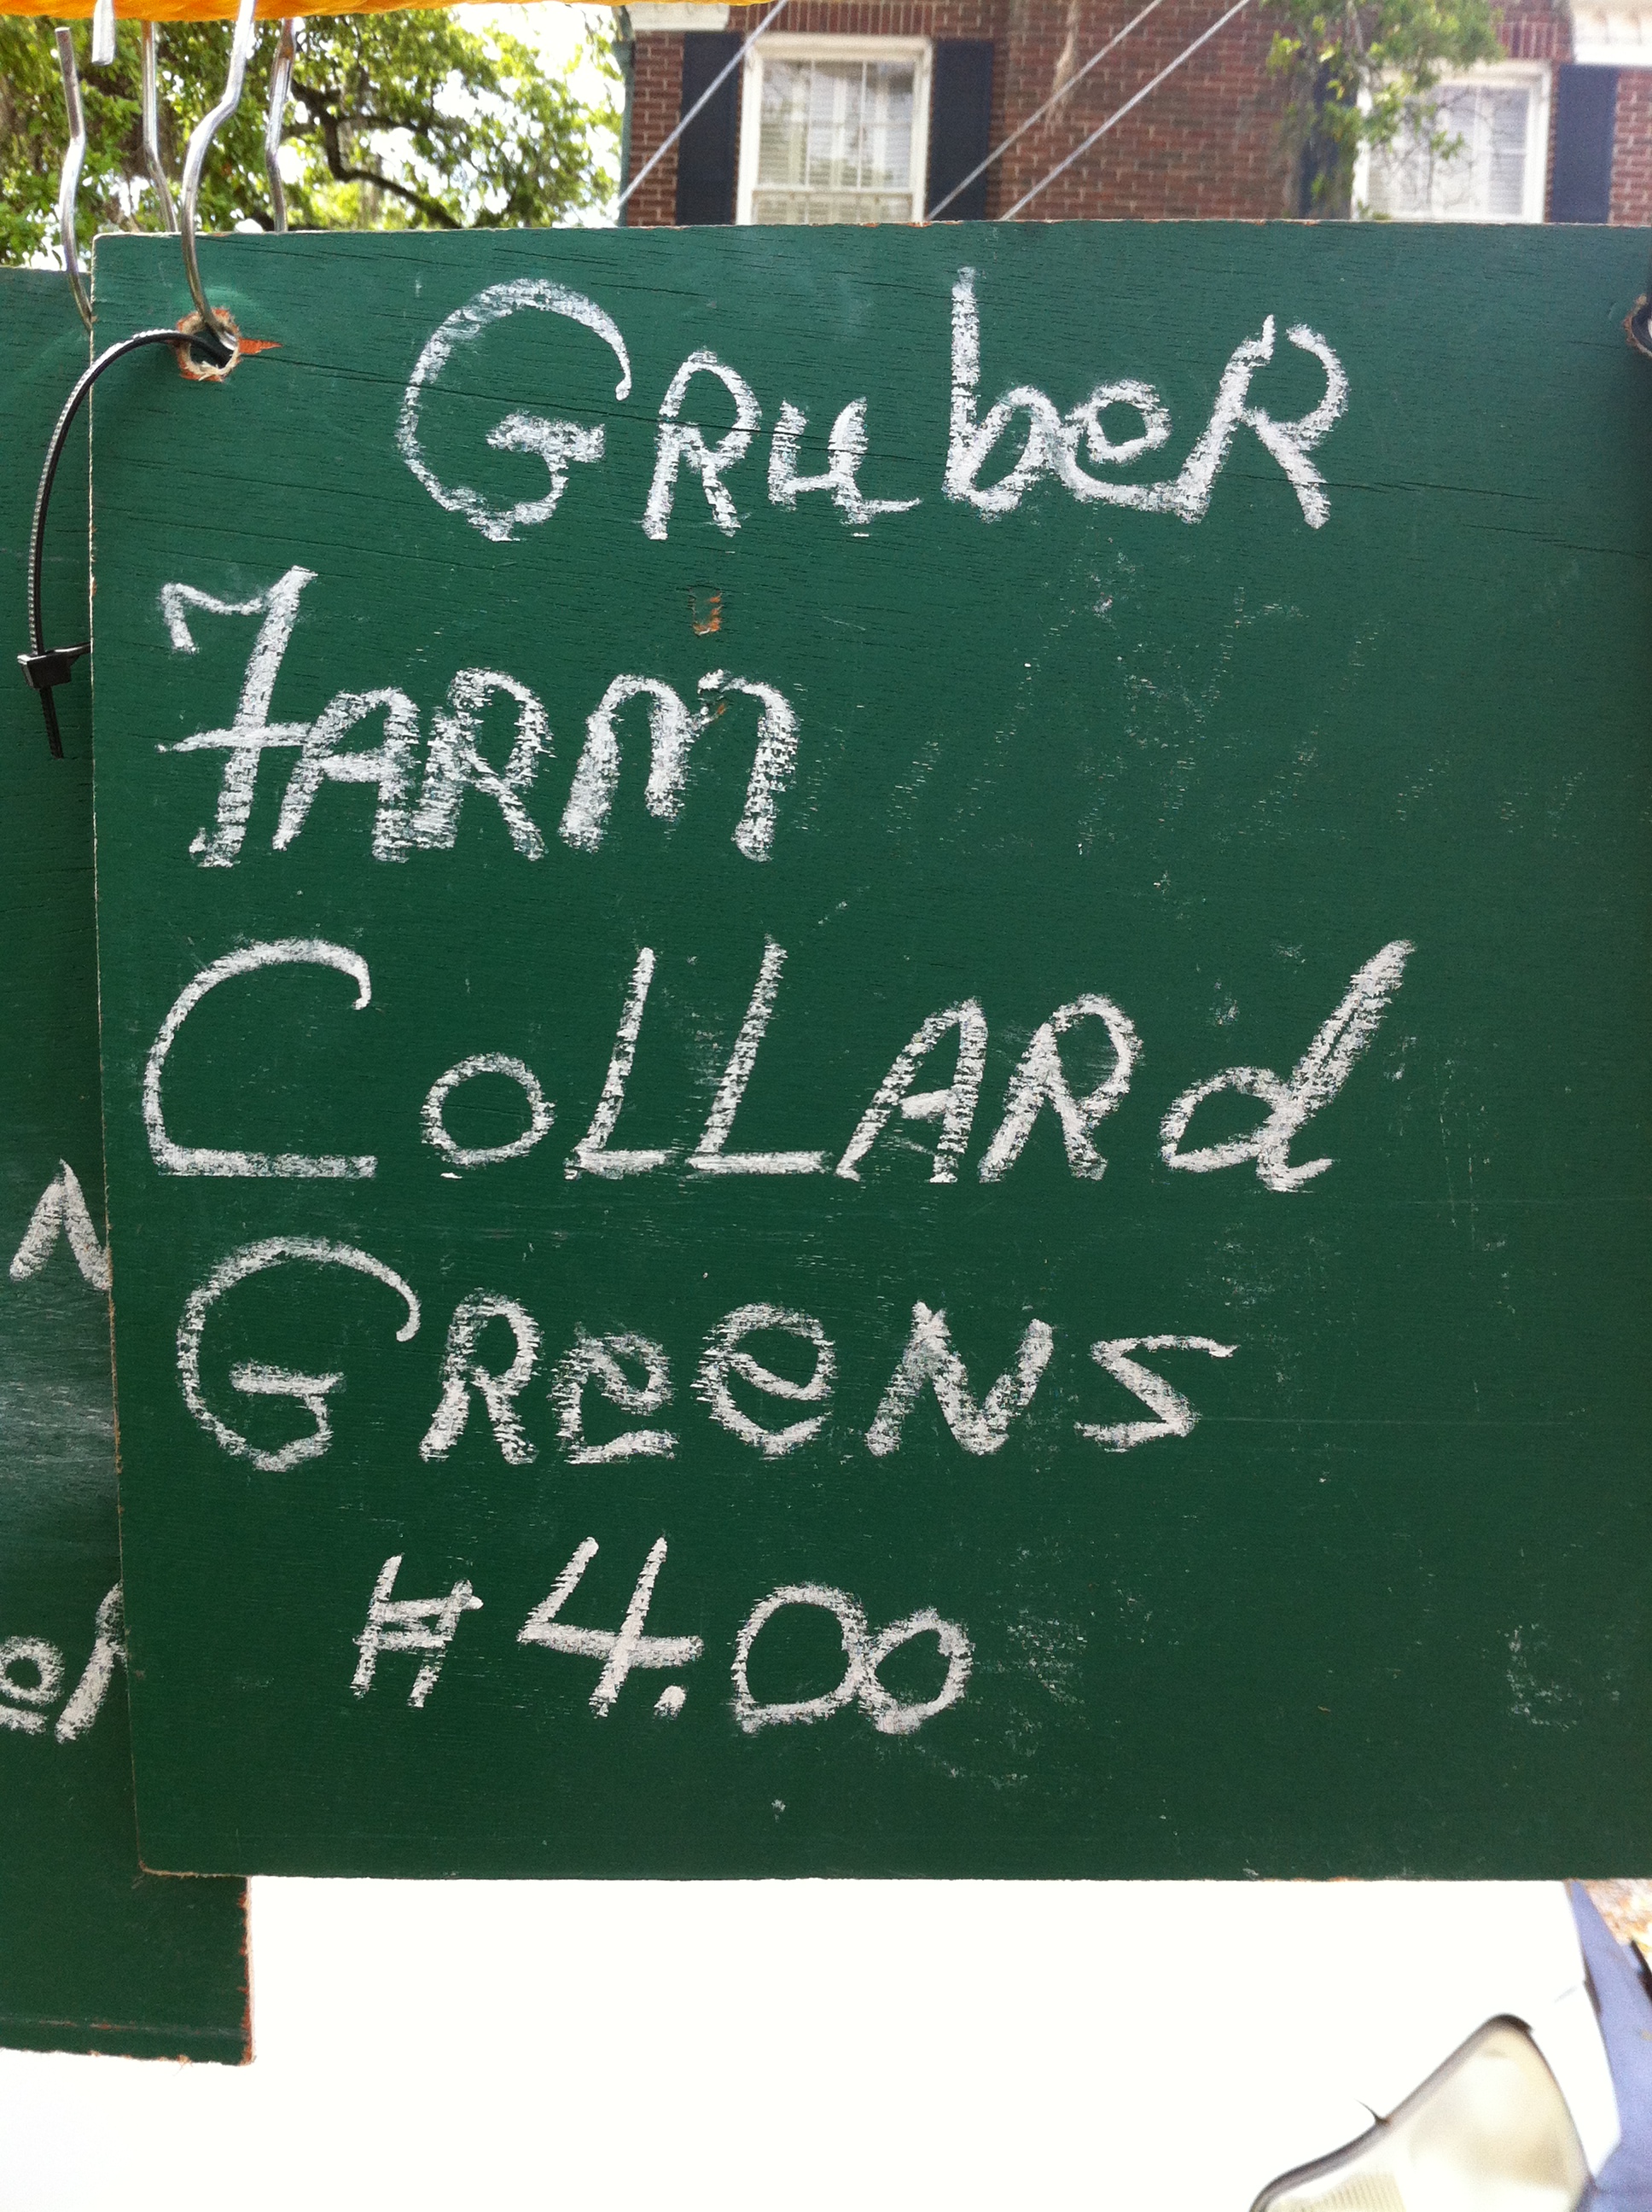 GRubeR
FARM
CoLLARd
GReeNS
#4.00